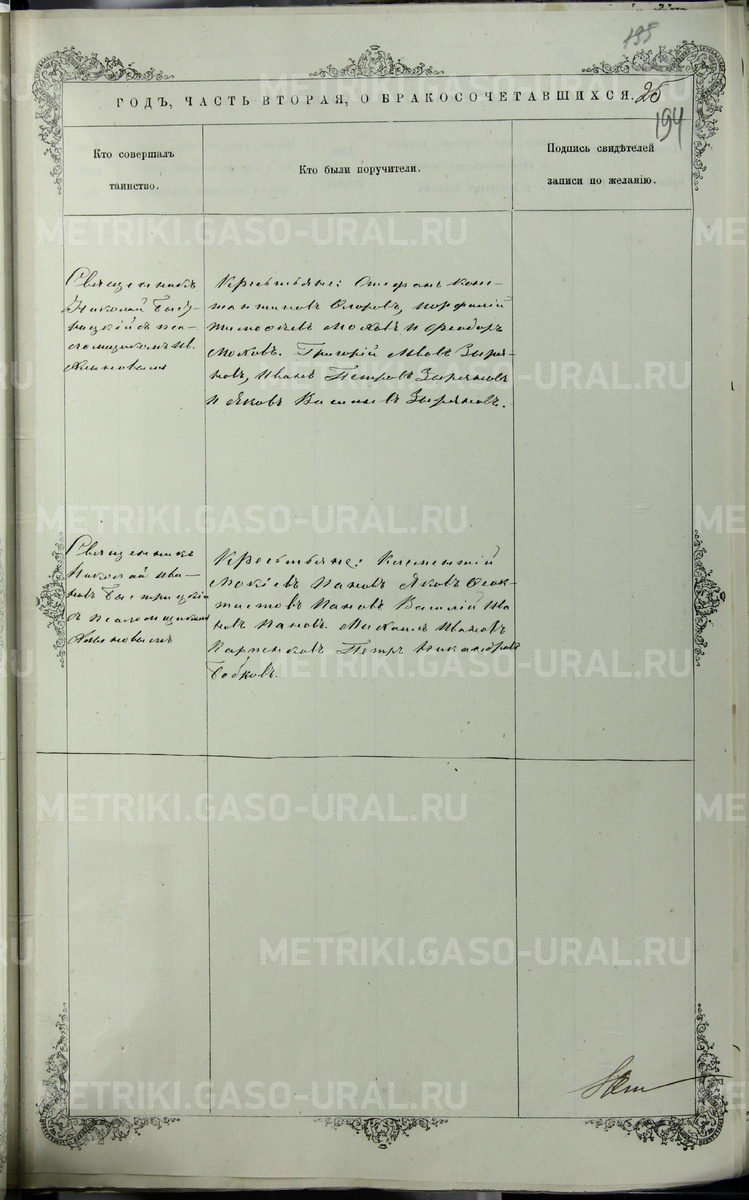 195
ГОДЪ, ЧАСТЬ ВТОРАЯ, О БРАКОСОЧЕТАВШИХСЯ.
25
194
Кто совершалъ
таинство.
Кто были поручители.
Подпись свидѣтелей
записи по желанію.
Священникъ
Николай
Крестьяне: Стефанъ Конс-
тантиновъ
Мокѣевъ и Ѳеодоръ
Григорій Львовъ Зыря-
новъ, Иванъ Петровъ Зыряновъ
и Яковъ Васильевъ Зыряновъ.
Священникъ
Николай Ива-
новъ Быстрицкій
съ псаломщикомъ
Крестьяне: Климентій
Мокѣевъ Пановъ Яковъ Ѳеок-
тистовъ Пановъ Василій Ива
новъ Пановъ. Михаилъ Ивановъ
Петръ Никандровъ
Бобковъ.
METRIKI.GASO-URAL.RU